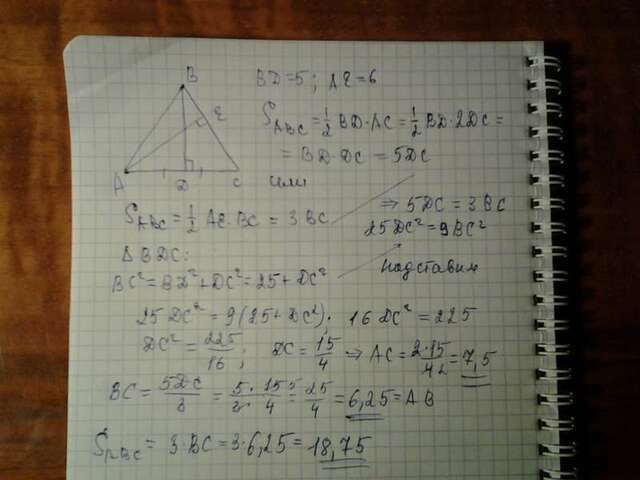 B
E
A
D
C
BD=5; AE=6
S_ABC = 1/2 BD·AC = 1/2 BD·2DC =
= BD·DC = 5DC
или
S_ABC = 1/2 AE·BC = 3BC
⇒ 5DC = 3BC
25DC² = 9BC²
Δ BDC:
BC² = BD² + DC² = 25 + DC²
подставим
25DC² = 9(25+DC²); 16DC² = 225
DC² = 225/16; DC = 15/4 ⇒ AC = 2·15/4 2 = 7,5
BC = 5DC/3 = 5·15 5/3·4 = 25/4 = 6,25 = AB
S_ABC = 3·BC = 3·6,25 = 18,75